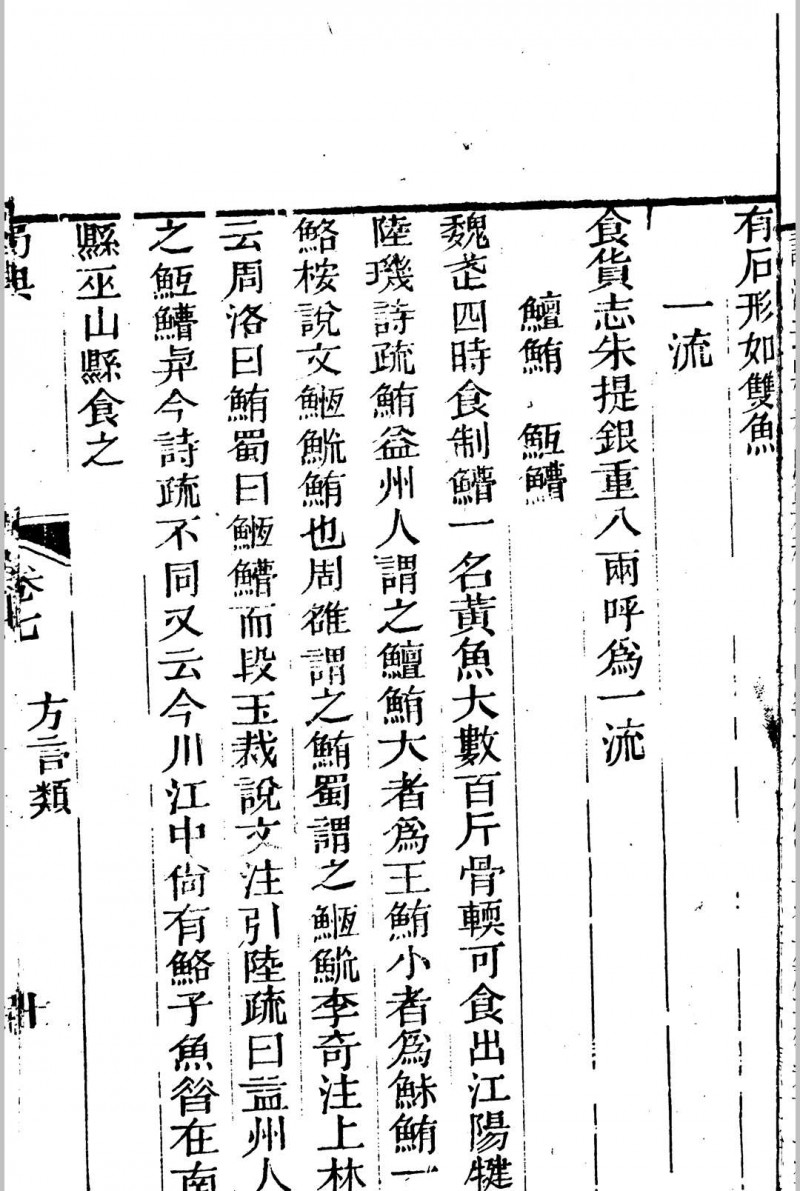 有石形如雙魚
一流
食貨志朱提銀重八兩呼爲一流
鱣鮪 䱴䲙
魏武四時食制䲙一名黃魚大數百斤骨輭可食出江陽犍
陸璣詩疏鮪益州人謂之鱣鮪大者爲王鮪小者爲鮇鮪一
鮥桉說文䱭鮪也周雒謂之鮪蜀謂之䱭李奇注上林
云周洛曰鮪蜀曰䱭䲙而段玉裁說文注引陸疏曰益州人
之䱴䲙與今詩疏不同又云今川江中尙有鮥子魚昝在南
縣巫山縣食之
卷七
方言類